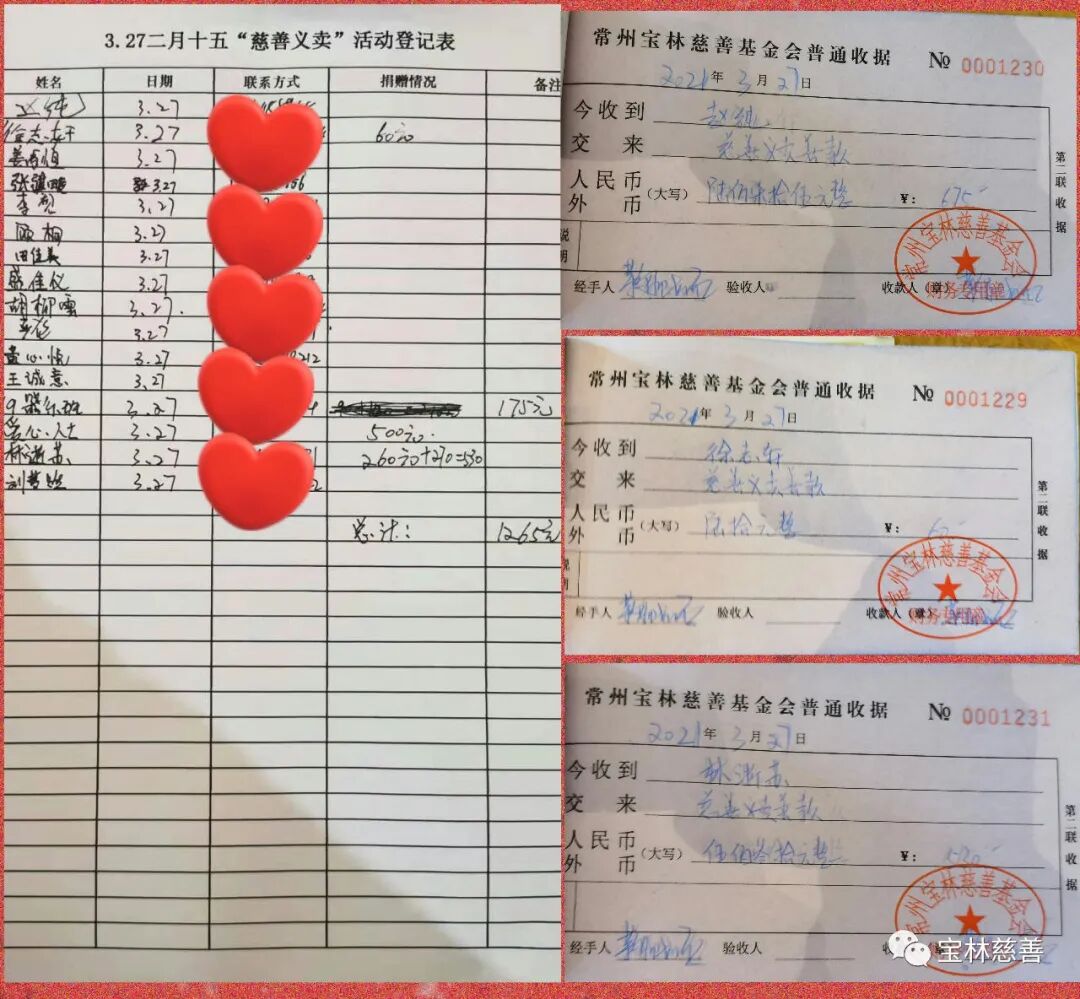 3.27二月十五“慈善义卖”活动登记表
姓名 日期 联系方式 捐赠情况 备注
3.27
徐志轩 3.27 60元
3.27
3.27
3.27
顾相 3.27
田佳美 3.27
盛佳仪 3.27
3.27
3.27
袁心悦 3.27 212
王诚意 3.27
3.27 175元
爱心人士 3.27 500元.
林浙苏 3.27 260元+270=530
3.27
总计: 1265元
常州宝林慈善基金会普通收据 № 0001230
2021年3月27日
今收到 赵纯
交来 慈善义卖善款
人民币
外币
(大写) 陆佰柒拾伍元整 ¥: 675
说明
第二联收据
经手人 验收人 收款人(章)
常州宝林慈善基金会
财务专用章
常州宝林慈善基金会普通收据 № 0001229
2021年3月27日
今收到 徐志轩
交来 慈善义卖善款
人民币
外币
(大写) 陆拾元整 ¥:
第二联收据
经手人 验收人 收款人(章)
常州宝林慈善基金会
财务专用章
常州宝林慈善基金会普通收据 № 0001231
2021年3月27日
今收到 林浙苏
交来 慈善义卖善款
人民币
外币
(大写) 伍佰叁拾元整 ¥: 530
第二联收据
经手人 验收人
常州宝林慈善基金会
宝林慈善